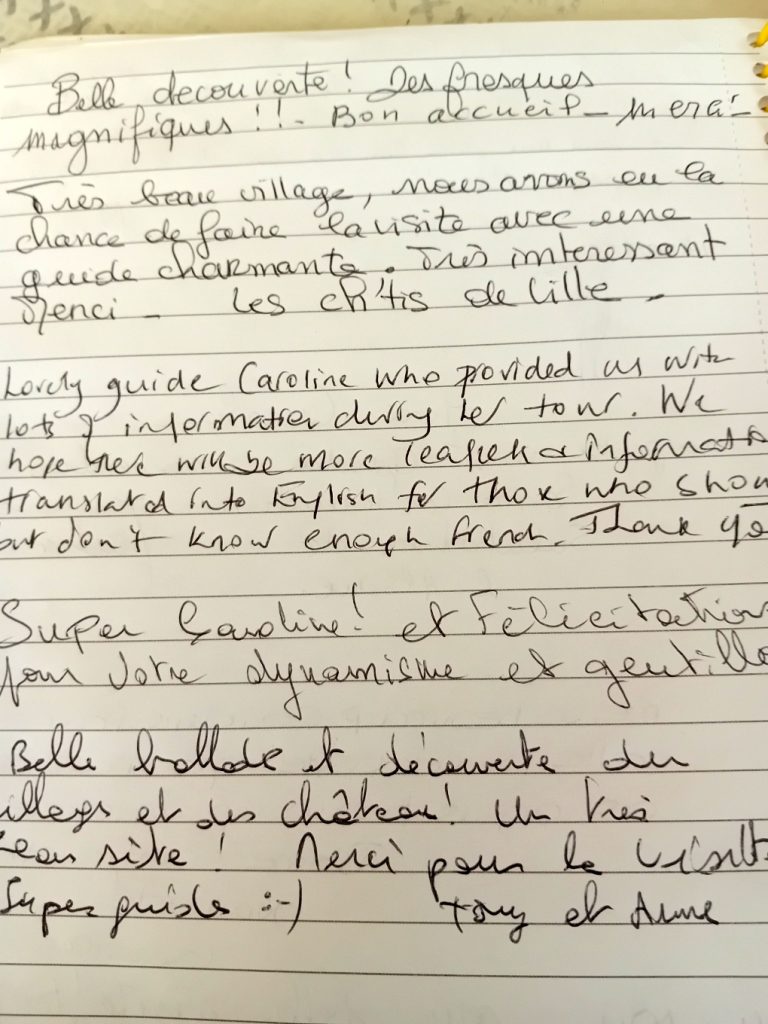 Belle decouverte! Des fresques
magnifiques!!- Bon accueil - Merci -
Très beau village, nous avons eu la
chance de faire la visite avec une
guide charmante. Très interessant
Merci - Les ch'tis de Lille -
Lovely guide Caroline who provided us with
lots of information during her tour. We
hope there will be more leaflets & informati
translated into English for those who show
but don't know enough french. Thank yo
Super Caroline! et Félicitation
pour votre dynamisme et gentille
Belle ballade et découverte du
illage et des château! Un très
eau site! Merci pour la visite
Super guide :-) Tony et Anne